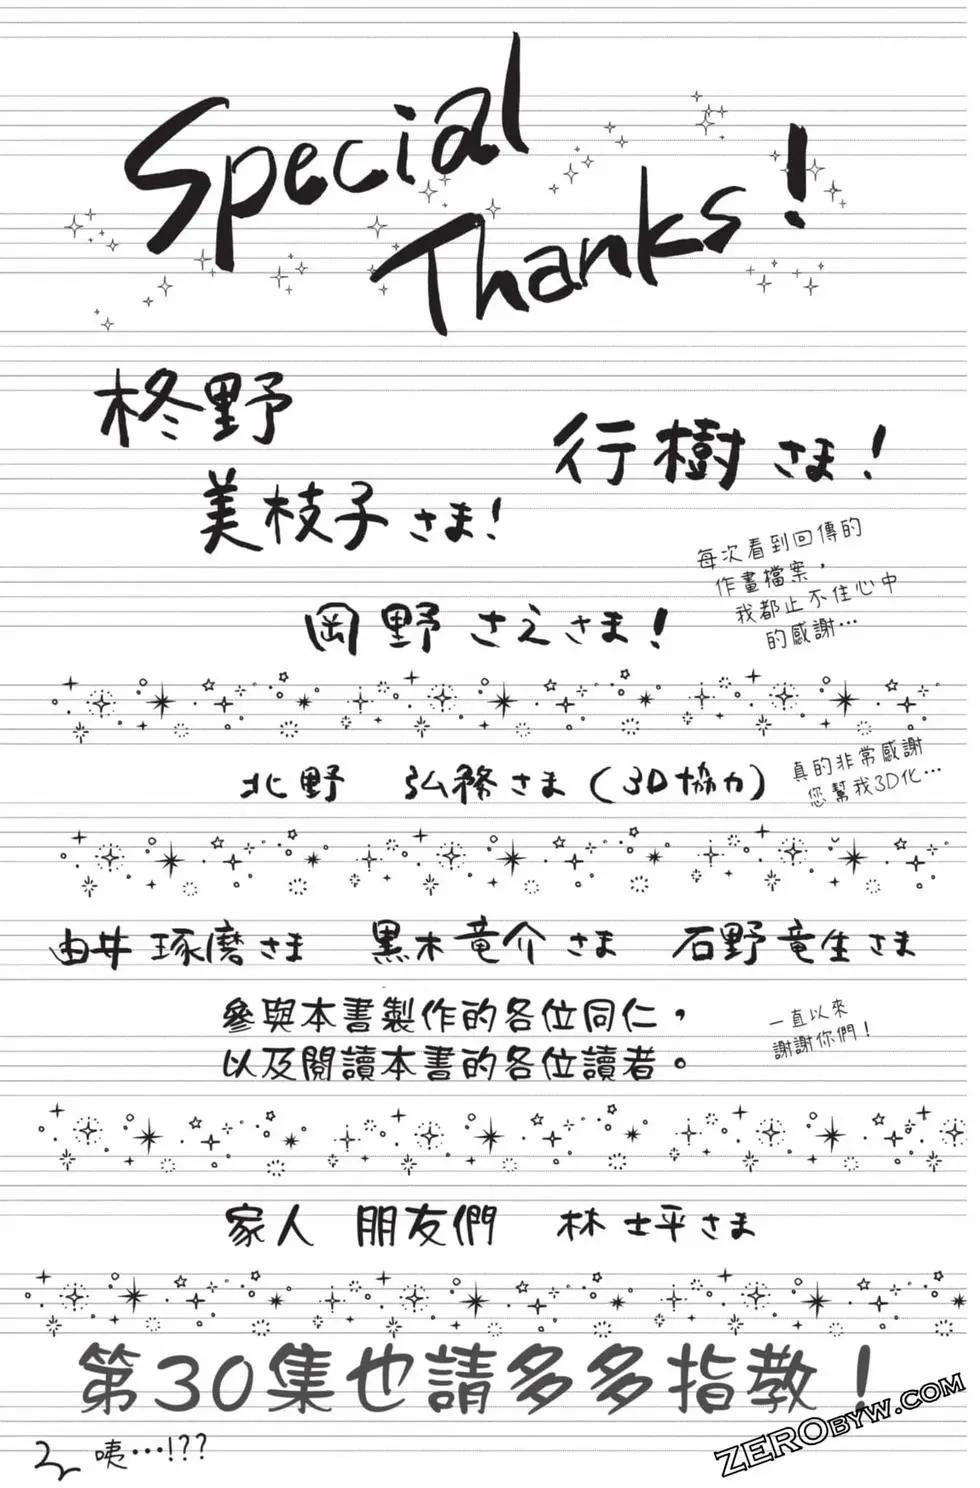 Special
Thanks!
柊野
美枝子さま!
行樹さま!
每次看到回傳的
作畫檔案，
我都止不住心中
的感謝…
岡野さえさま!
北野 弘務さま(3D協力)
真的非常感謝
您幫我3D化…
由井琢磨さま 黒木竜介さま 石野竜生さま
參與本書製作的各位同仁，
以及閱讀本書的各位讀者。
一直以來
謝謝你們!
家人 朋友們 林士平さま
第30集也請多多指教!
咦…!??
ZEROBYW.COM